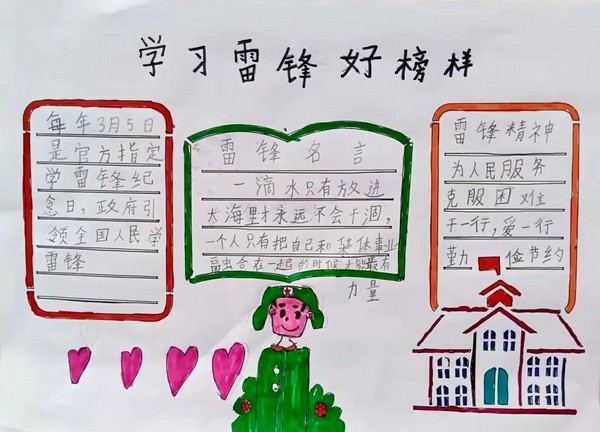 学习雷锋好榜样
每年3月5日
是官方指定
学雷锋纪
念日,政府引
领全国人民学
雷锋
雷锋名言
一滴水只有放进
大海里才永远不会干涸,
一个人只有把自己和集体事业
融合在一起的时候才能最有
力量
雷锋精神
为人民服务
克服困难
干一行,爱一行
勤俭节约